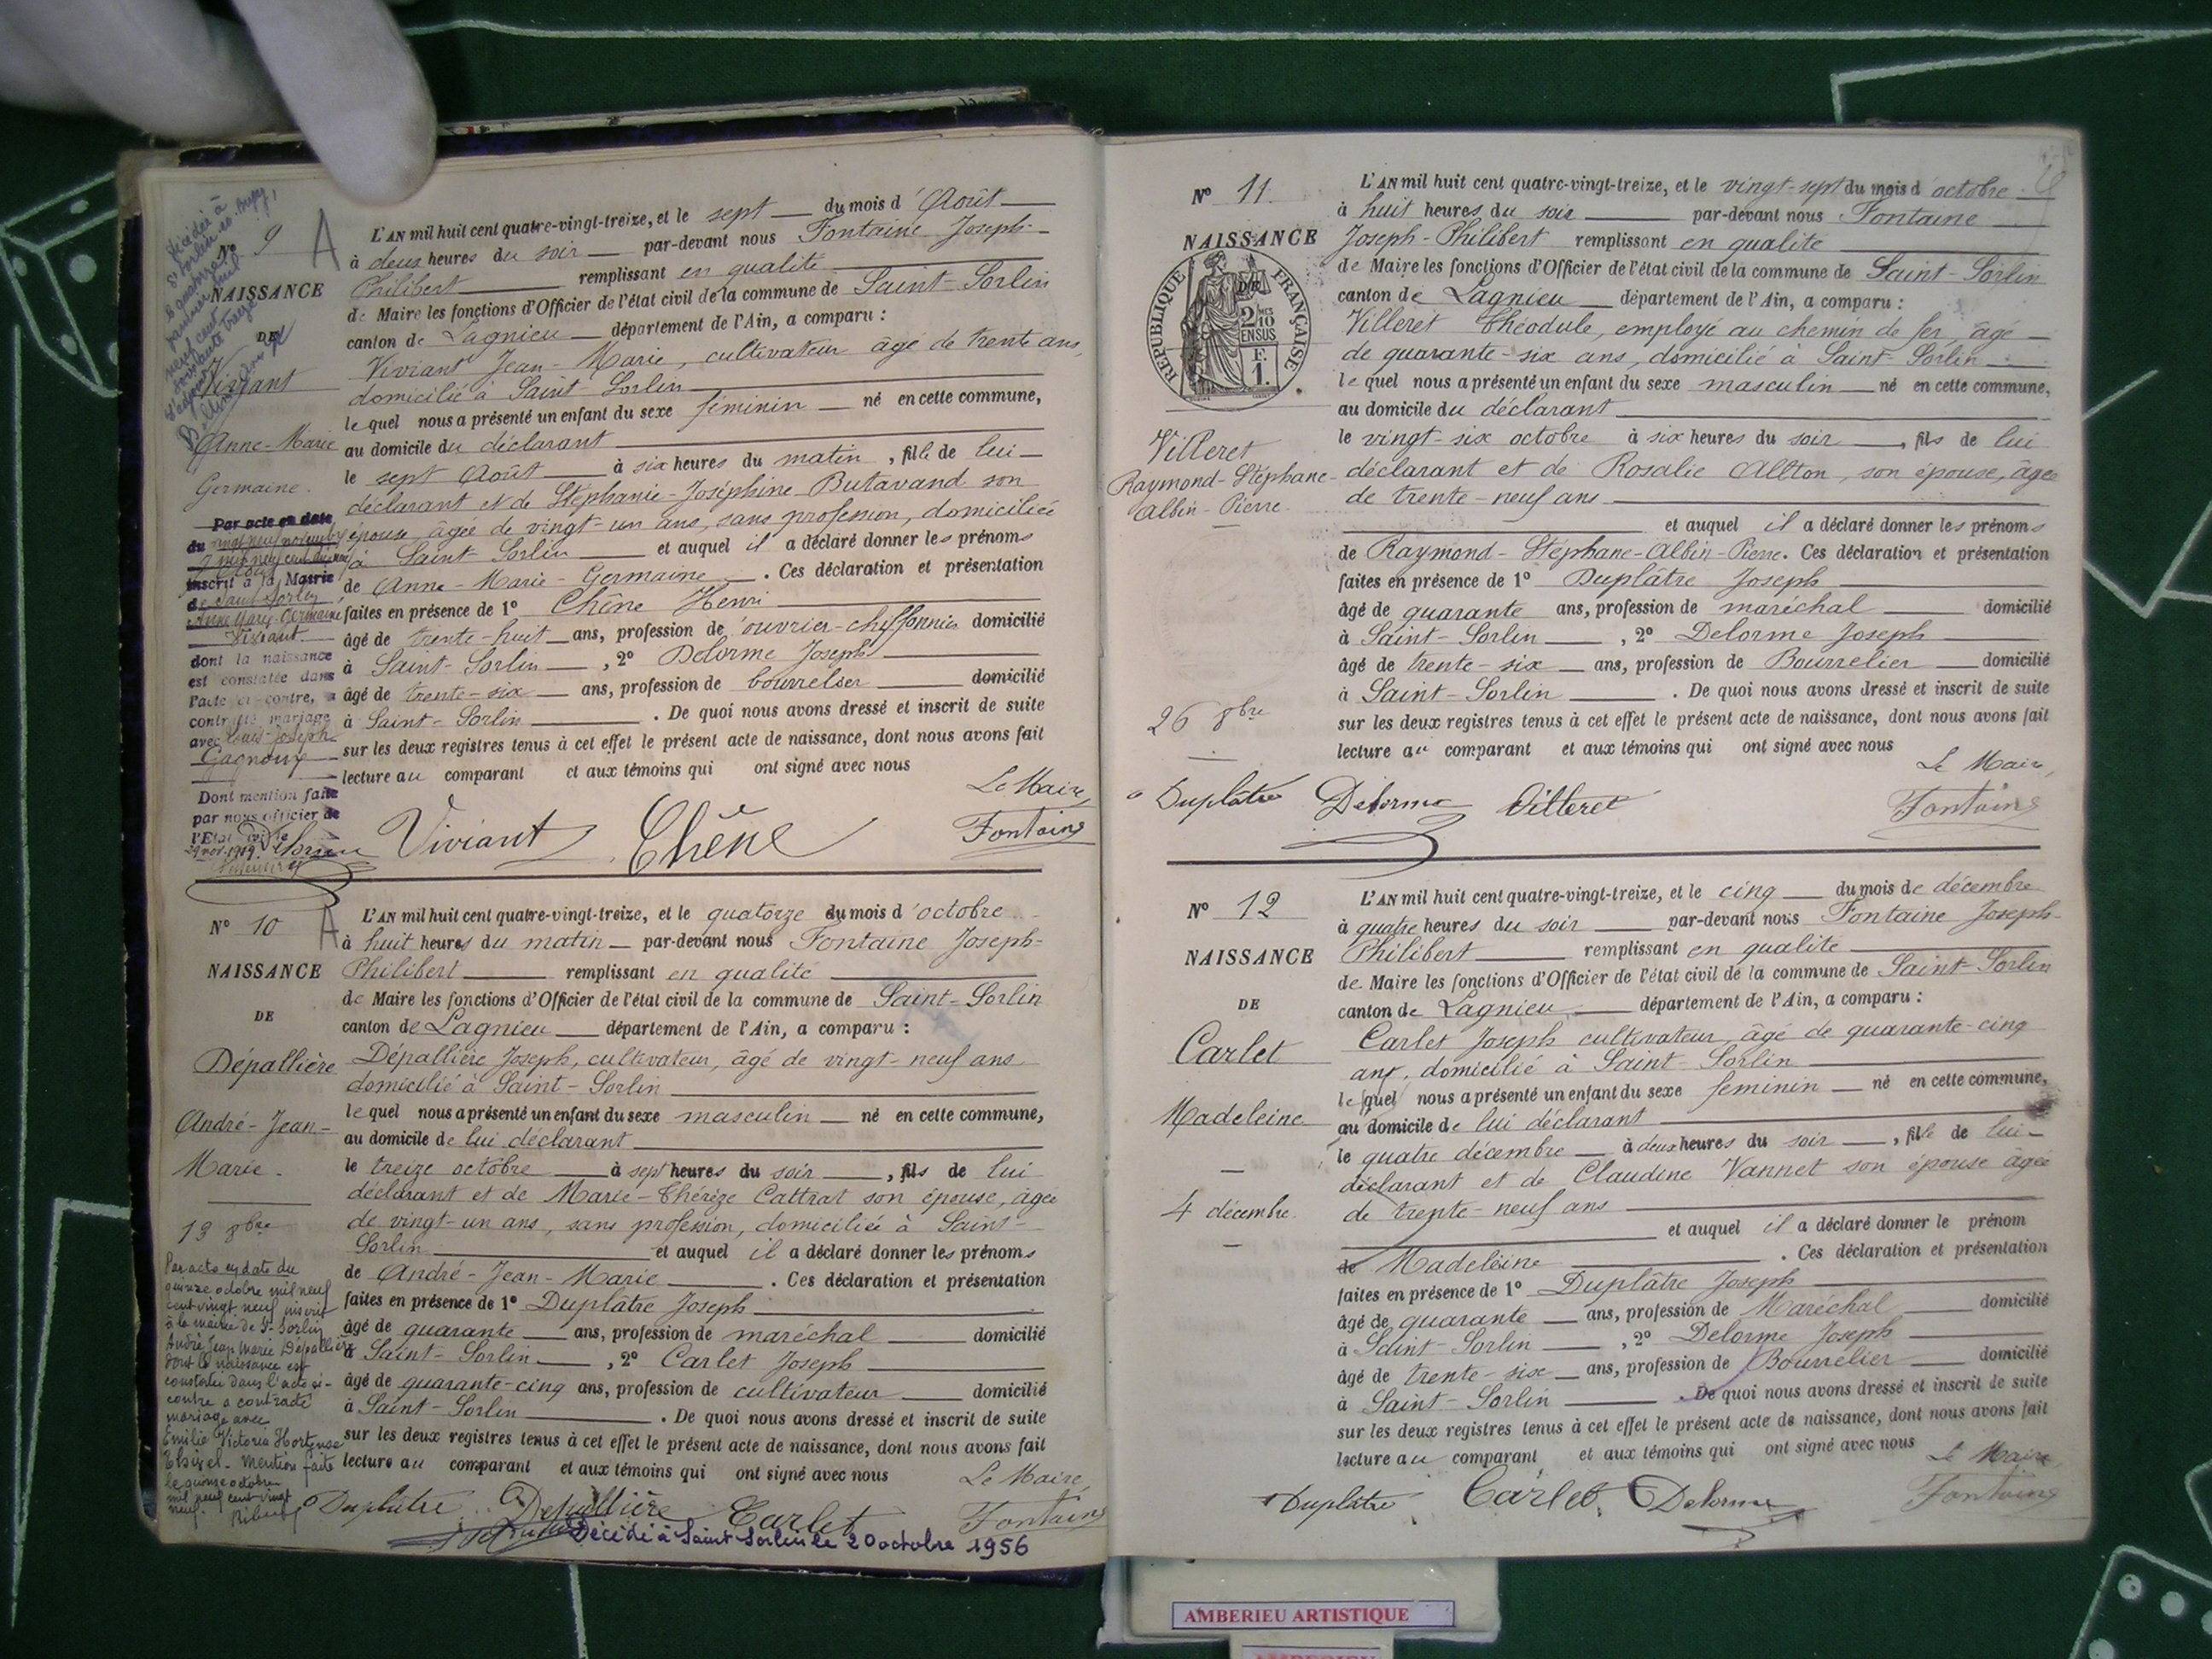 Décédée à
N° 9
NAISSANCE
DE
Viviant
Anne-Marie
Germaine.
Par acte en date
du vingt neuf novembre
inscrit à la Mairie
de Saint Sorlin
Anne Marie Germaine
Viviant
dont la naissance
est constatée dans
l'acte ci-contre, a
contracté mariage
avec Louis-Joseph
Dont mention faite
par nous officier de
l'Etat civil
29 nov. 1919.
A
L'AN mil huit cent quatre-vingt-treize, et le sept du mois d'Août
à deux heures du soir par-devant nous Fontaine Joseph-
Philibert remplissant en qualité
de Maire les fonctions d'Officier de l'état civil de la commune de Saint-Sorlin
canton de Lagnieu département de l'Ain, a comparu :
Viviant Jean-Marie, cultivateur âgé de trente ans,
domicilié à Saint-Sorlin
lequel nous a présenté un enfant du sexe féminin né en cette commune,
au domicile du déclarant
le sept Août à six heures du matin, fille de lui
déclarant et de Stéphanie-Joséphine Butavand son
épouse âgée de vingt-un ans, sans profession, domiciliée
à Saint-Sorlin et auquel il a déclaré donner les prénoms
de Anne-Marie-Germaine. Ces déclaration et présentation
faites en présence de 1° Chêne Henri
âgé de trente-huit ans, profession de ouvrier-chiffonnier domicilié
à Saint-Sorlin, 2° Delorme Joseph
âgé de trente-six ans, profession de bourrelier domicilié
à Saint-Sorlin. De quoi nous avons dressé et inscrit de suite
sur les deux registres tenus à cet effet le présent acte de naissance, dont nous avons fait
lecture au comparant et aux témoins qui ont signé avec nous
Le Maire,
Viviant Chêne Fontaine
N° 10
NAISSANCE
DE
Dépallière
André-Jean-
Marie.
13 8bre
Par acte en date du
quinze octobre mil neuf
cent vingt neuf inscrit
à la mairie de St Sorlin
André Jean Marie Dépallière
dont la naissance est
constatée dans l'acte ci-
contre a contracté
mariage avec
Emilie Victoria Hortense
mention faite
le quinze octobre
mil neuf cent vingt
neuf.
A
L'AN mil huit cent quatre-vingt-treize, et le quatorze du mois d'octobre
à huit heures du matin par-devant nous Fontaine Joseph-
Philibert remplissant en qualité
de Maire les fonctions d'Officier de l'état civil de la commune de Saint-Sorlin
canton de Lagnieu département de l'Ain, a comparu :
Dépallière Joseph, cultivateur, âgé de vingt-neuf ans
domicilié à Saint-Sorlin
lequel nous a présenté un enfant du sexe masculin né en cette commune,
au domicile de lui déclarant
le treize octobre à sept heures du soir, fils de lui
déclarant et de Marie-Thérèze Cattrat son épouse, âgée
de vingt-un ans, sans profession, domiciliée à Saint-
Sorlin et auquel il a déclaré donner les prénoms
de André-Jean-Marie. Ces déclaration et présentation
faites en présence de 1° Duplâtre Joseph
âgé de quarante ans, profession de maréchal domicilié
à Saint-Sorlin, 2° Carlet Joseph
âgé de quarante-cinq ans, profession de cultivateur domicilié
à Saint-Sorlin. De quoi nous avons dressé et inscrit de suite
sur les deux registres tenus à cet effet le présent acte de naissance, dont nous avons fait
lecture au comparant et aux témoins qui ont signé avec nous
Le Maire,
Duplâtre Depallière Carlet Fontaine
Décédé à Saint Sorlin le 20 octobre 1956
N° 11.
NAISSANCE
DE
RÉPUBLIQUE FRANÇAISE
2 10 EN SUS
F. 1.
Villeret
Raymond-Stéphane-
Albin-Pierre.
26 8bre
L'AN mil huit cent quatre-vingt-treize, et le vingt-sept du mois d'octobre
à huit heures du soir par-devant nous Fontaine
Joseph-Philibert remplissant en qualité
de Maire les fonctions d'Officier de l'état civil de la commune de Saint-Sorlin
canton de Lagnieu département de l'Ain, a comparu :
Villeret Théodule, employé au chemin de fer, âgé
de quarante-six ans, domicilié à Saint-Sorlin
lequel nous a présenté un enfant du sexe masculin né en cette commune,
au domicile du déclarant
le vingt-six octobre à six heures du soir, fils de lui
déclarant et de Rosalie Allton, son épouse, âgée
de trente-neuf ans
et auquel il a déclaré donner les prénoms
de Raymond-Stéphane-Albin-Pierre. Ces déclaration et présentation
faites en présence de 1° Duplâtre Joseph
âgé de quarante ans, profession de maréchal domicilié
à Saint-Sorlin, 2° Delorme Joseph
âgé de trente-six ans, profession de Bourrelier domicilié
à Saint-Sorlin. De quoi nous avons dressé et inscrit de suite
sur les deux registres tenus à cet effet le présent acte de naissance, dont nous avons fait
lecture au comparant et aux témoins qui ont signé avec nous
Le Maire,
Duplâtre Delorme Villeret Fontaine
N° 12
NAISSANCE
DE
Carlet
Madeleine
4 décembre.
L'AN mil huit cent quatre-vingt-treize, et le cinq du mois de décembre
à quatre heures du soir par-devant nous Fontaine Joseph-
Philibert remplissant en qualité
de Maire les fonctions d'Officier de l'état civil de la commune de Saint-Sorlin
canton de Lagnieu département de l'Ain, a comparu :
Carlet Joseph cultivateur, âgé de quarante-cinq
ans, domicilié à Saint-Sorlin
lequel nous a présenté un enfant du sexe féminin né en cette commune,
au domicile de lui déclarant
le quatre décembre à deux heures du soir, fille de lui
déclarant et de Claudine Vannet son épouse âgée
de trente-neuf ans
et auquel il a déclaré donner le prénom
de Madeleine. Ces déclaration et présentation
faites en présence de 1° Duplâtre Joseph
âgé de quarante ans, profession de Maréchal domicilié
à Saint-Sorlin, 2° Delorme Joseph
âgé de trente-six ans, profession de Bourrelier domicilié
à Saint-Sorlin. De quoi nous avons dressé et inscrit de suite
sur les deux registres tenus à cet effet le présent acte de naissance, dont nous avons fait
lecture au comparant et aux témoins qui ont signé avec nous
Le Maire
Duplâtre Carlet Delorme Fontaine
AMBERIEU ARTISTIQUE